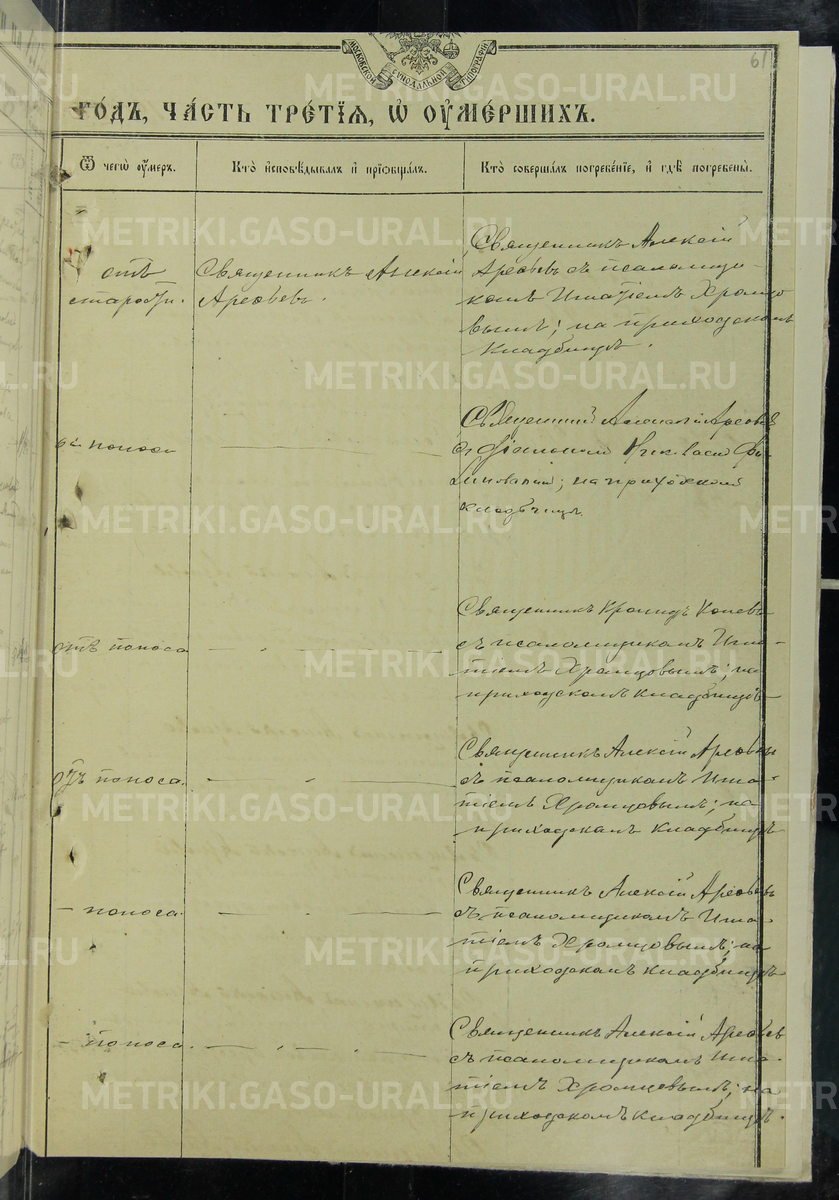 МОСКОВСКОЙ СѴНОДАЛЬНОЙ ТИПОГРАФІИ
61
ГО́ДЪ, ЧА́СТЬ ТРЕ́ТІѦ, Ѽ ОУМЕ́РШИХЪ.
Ѿ чегѡ̀ оу́меръ.
Кто̀ и҆сповѣ́дывалъ и҆ прїѡбща́лъ.
Кто̀ соверша́лъ погребе́нїе, и҆ гдѣ̀ погребены̀.
отъ
старости.
Священникъ Алексій
Арефьевъ.
Священникъ Алексій
Арефьевъ съ псаломщи-
комъ Игнатіемъ Хромцо
вымъ; на приходскомъ
кладбищѣ.
отъ поноса
Священникъ Алексій Арефьев
съ діакономъ
на приходском
кладбищѣ
отъ поноса
Священникъ Кронидъ
съ псаломщикомъ Игна-
тіемъ Хромцовымъ; на
приходскомъ кладбищѣ
отъ поноса.
Священникъ Алексій Арефьевъ
съ псаломщикомъ Игна-
тіемъ Хромцовымъ; на
приходскомъ кладбищѣ
– поноса.
Священникъ Алексій Арефьевъ
съ псаломщикомъ Игна-
тіемъ Хромцовымъ; на
приходскомъ кладбищѣ
– поноса.
Священникъ Алексій Арефьев
съ псаломщикомъ Игна-
тіемъ Хромцовымъ; на
приходскомъ кладбищѣ.
METRIKI.GASO-URAL.RU